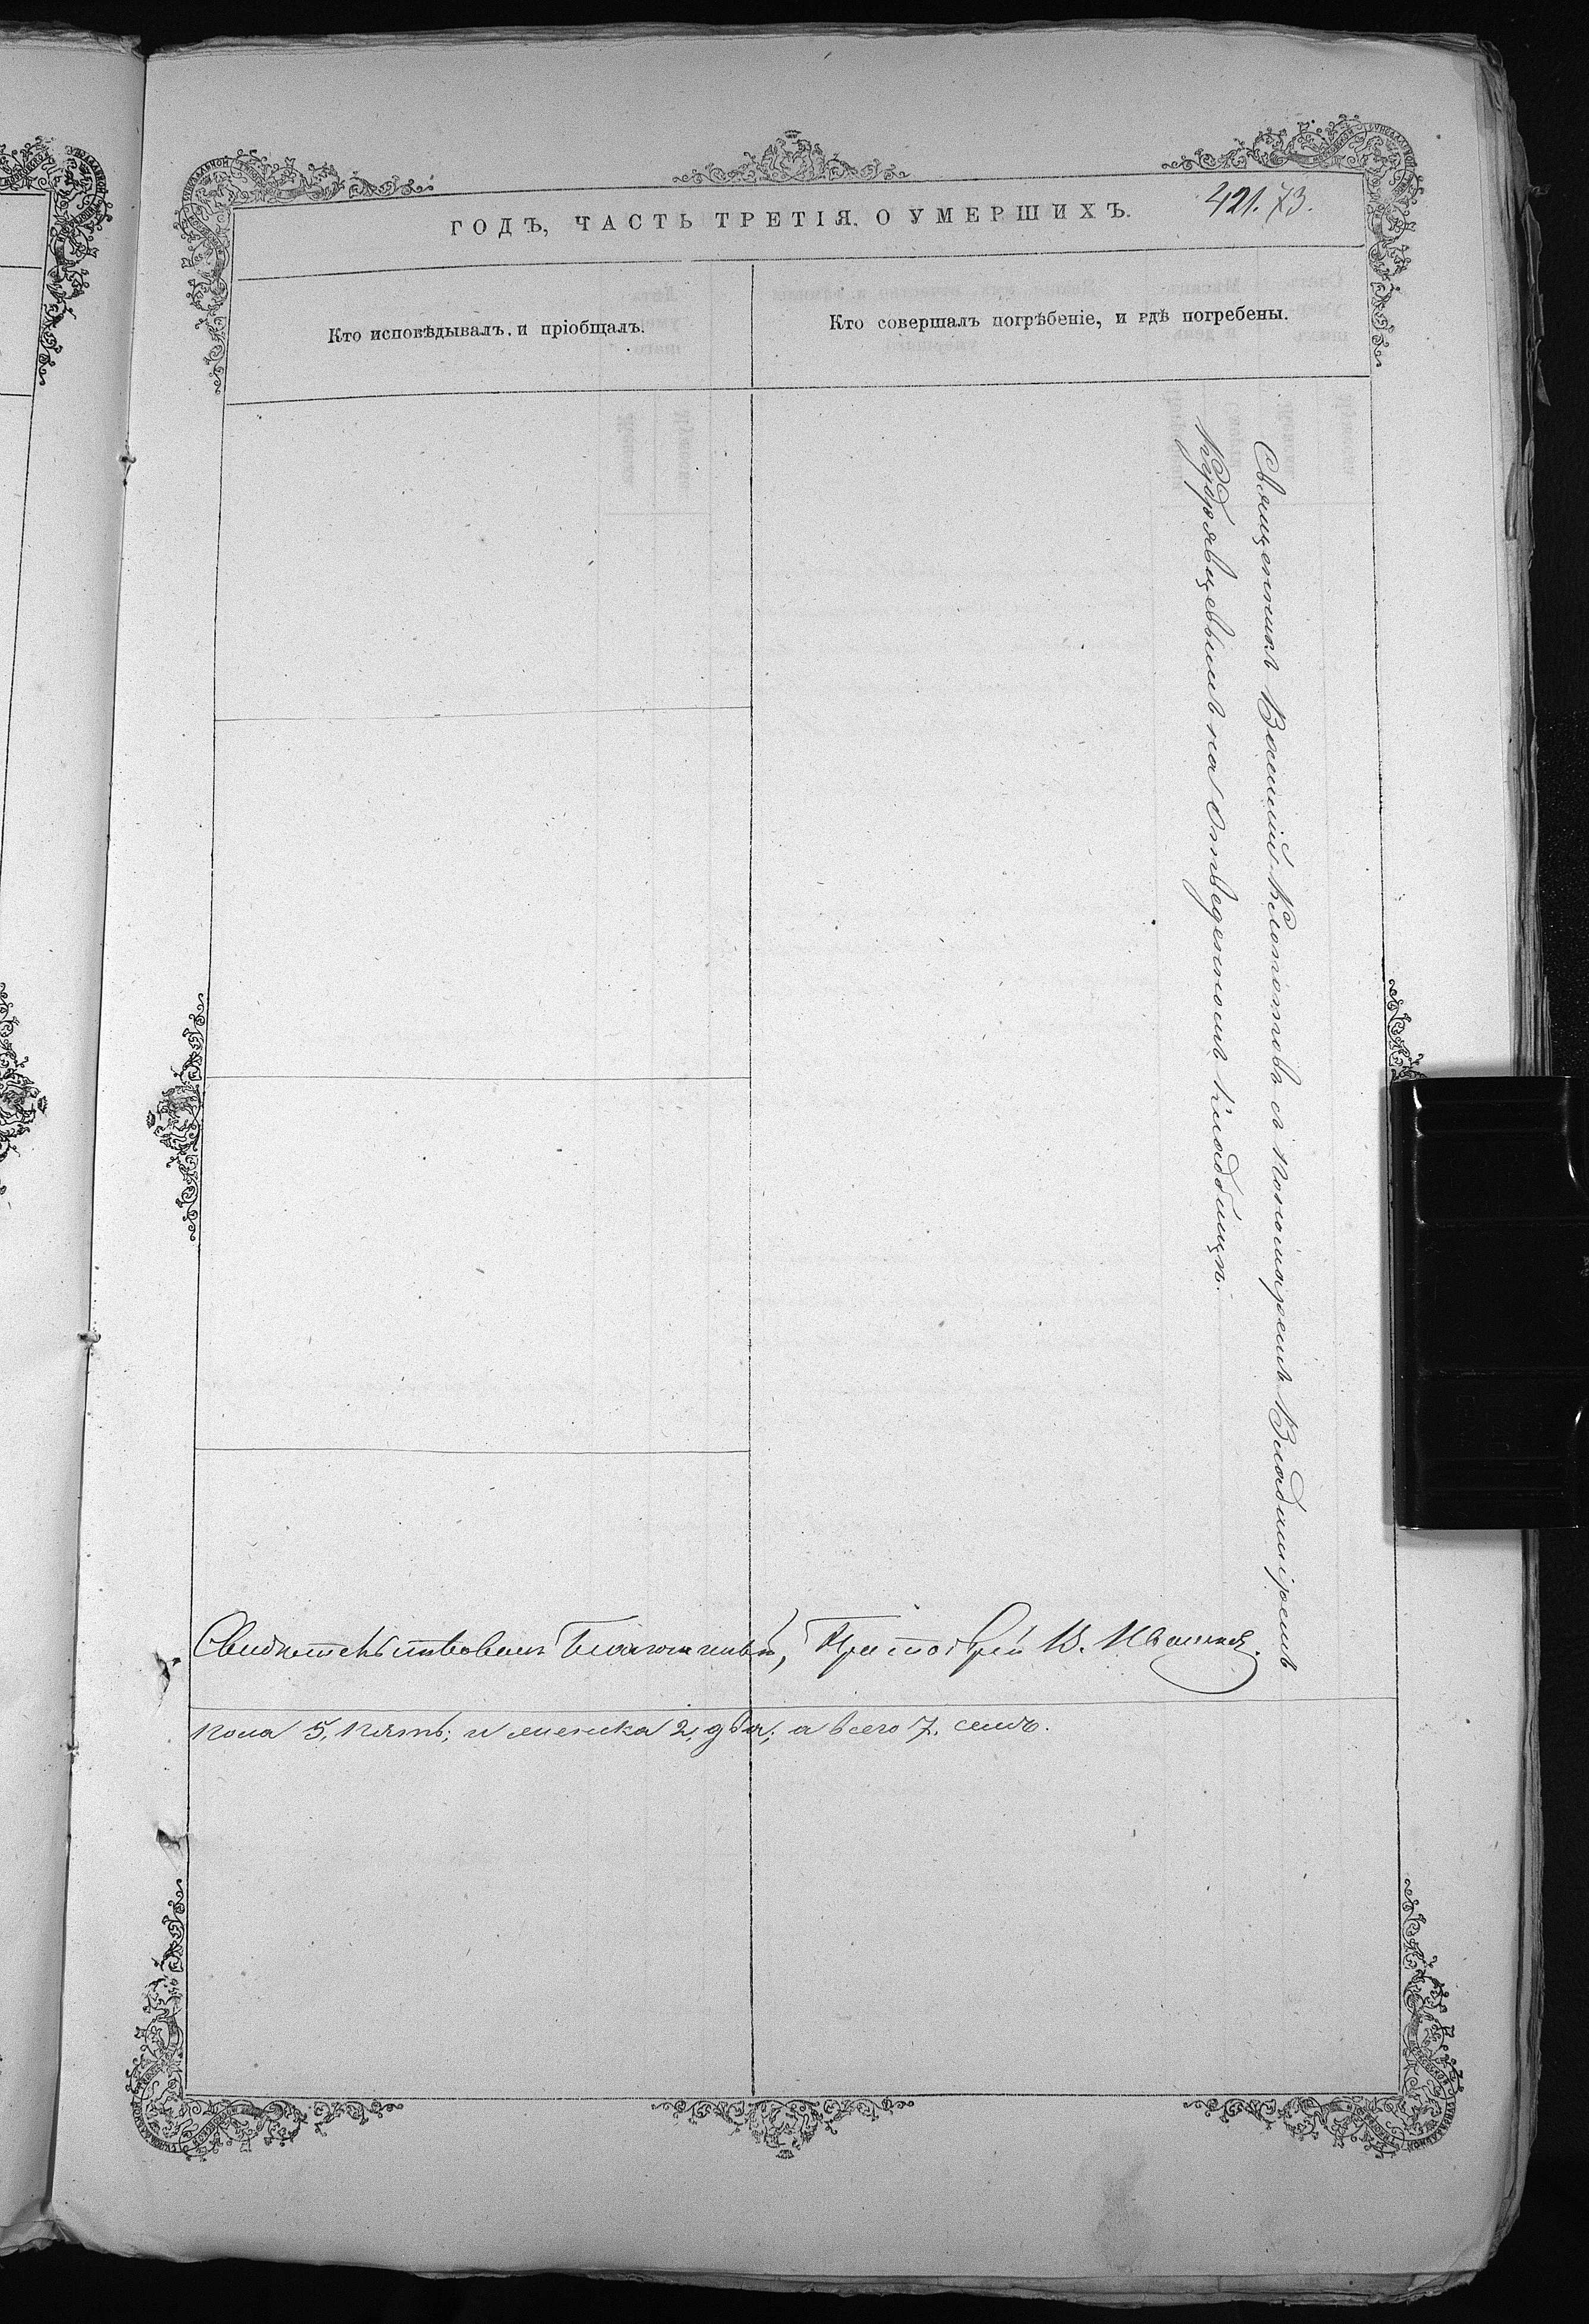 421. 73.
ГОДЪ, ЧАСТЬ ТРЕТІЯ, О УМЕРШИХЪ.
Кто исповѣдывалъ и пріобщалъ.
Кто совершалъ погрѣбеніе, и гдѣ погребены.
Священникъ Василій Колотовъ съ пономаремъ Владиміромъ
Кудрявцевымъ на отведенномъ кладбищѣ.
Свидѣтельствовалъ Благочинный, Протоіерей В.
пола 5, пять; и женска 2, два; а всего 7. семь.